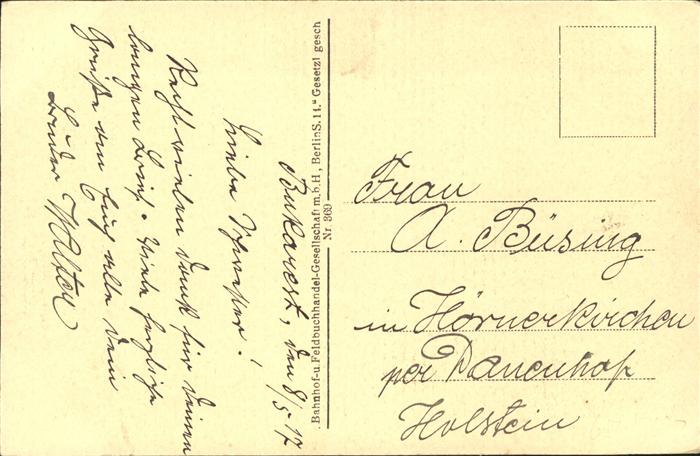 Bukarest, den 8/5 17
Liebe Schwester!
Recht vielen Dank für Deinen
langen Brief. Viele herzliche
Grüße an Euch alle Dein
Bruder Walter
Bahnhof-u. Feldbuchhandel-Gesellschaft m. b. H., Berlin S. 14. Gesetzl gesch
Nr. 369
Frau
A. Büsing
in Hörnerkirchen
per Dauenhof
Holstein